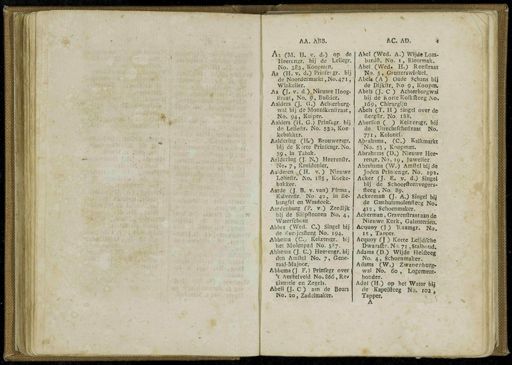 AA. ABB.
Aa (M. H. v. d.) op de
Heerengr. bij de Leliegr.
No. 282, Koopman.
Aa (H. v. d.) Prinsegr. bij
de Noordermarkt, No. 471,
Winkelier.
Aa (J. v. d.) Nieuwe Hoog-
straat, No. 8,
Aalders (J. G.) Achterburg-
wal bij de Monnikenstraat,
No. 94, Kuiper.
Aalders (H. G.) Prinsegr. bij
de Leliestr. No. 532, Koe-
kebakker.
Aaldering (H.) Brouwersgr.
bij de Korte Prinsegr. No.
39, in Tabak.
Aaldering (J. N.) Heerenstr.
No. 7,
Aalderen (H. v.) Nieuwe
Leliestr. No. 185, Koeke-
bakker.
Aarde (J. B. v. van) Firma,
Kalverstr. No. 42, in Be-
hangsel en
Aardenburg (P. v.) Zeedijk
bij de No. 4,
Waterschout
Abbes (Wed. C.) Singel bij
de No. 194.
Abbema (C., Keizersgr. bij
het Molenpad No. 317.
Abbema (J. C.) Heerengr. bij
den Amstel No. 7, Gene-
raal-Majoor.
Abbema (J F.) Prinsegr over
't Amstelveld No. 866, Re-
gistratie en Zegels.
Abeli (J. C.) aan de Beurs
No. 20, Zadelmaker.
AC. AD.
Abel (Wed. A.) Wijde Lom-
No. 1, Kleermak.
Abel (Wed. H.) Reestraat
No. 5,
Abels (A) Oude Schans bij
de Dijkstr, No 9, Koopm.
Abels (J. C) Achterburgwal
bij de Korte Kolksteeg No.
169, Chirurgijn
Abels (T. H) Singel over de
Bergstr. No. 188.
Aberson ( ) Keizersgr. bij
de Utrechtschestraat No.
771, Kolonel.
Abrahams, (C.) Kalkmarkt
No. 55, Koopman.
Abrahams (D.) Nieuwe Hee-
rengr. No. 19, Juwelier
Abrahams (W.) Amstel bij de
Joden Prinsengr. No. 192.
Acker (J. E. v. d.) Singel
bij de Schoorsteenvegers-
steeg, No. 89.
Ackerman (J. A.) Singel bij
de Gasthuismolensteeg No.
421, Schoenmaker.
Ackerman, Gravenstraat aan de
Nieuwe Kerk, Galanterien.
Acquoy (J) Raamgr. No.
15, Tapper.
Acquoy (J ) Korte Leijdsche
Dwarsstr. N. 77, Stalhoud.
Adams (D.) Wijde Heisteeg
No. 4, Schoenmaker.
Adams (W.) Zwanenburg-
wal No. 60, Logement-
houder.
Adel (H.) op het Water bij
de Kapelsteeg No. 102,
Tapper.
A